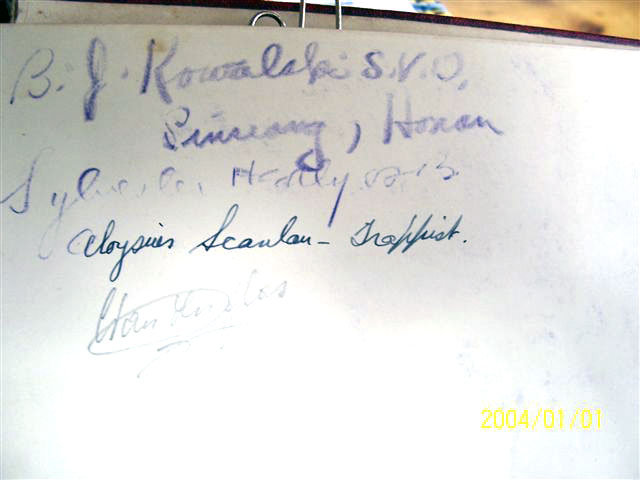 B. J. Kowalski S.V.D.
Sinsiang, Honan
Sylvester Healy O.S.B.
Aloysius Scanlan - Trappist.
2004/01/01